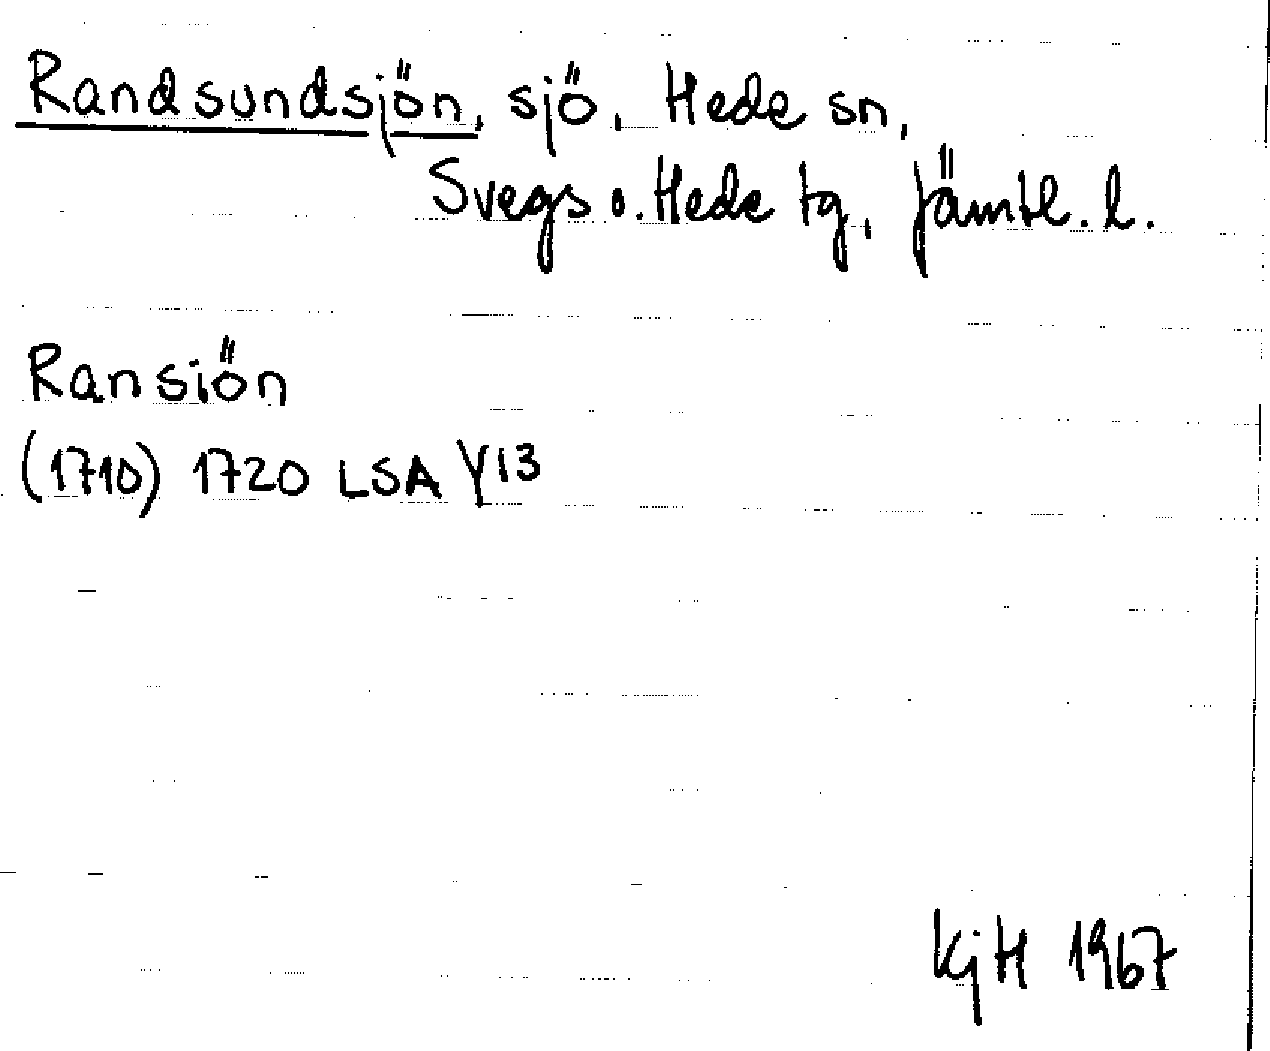 Randsundsjön, sjö, Hede sn,
Svegs o. Hede tg, Jämtl. l.
Ransiön
(1710) 1720 LSA Y13
KjH 1967